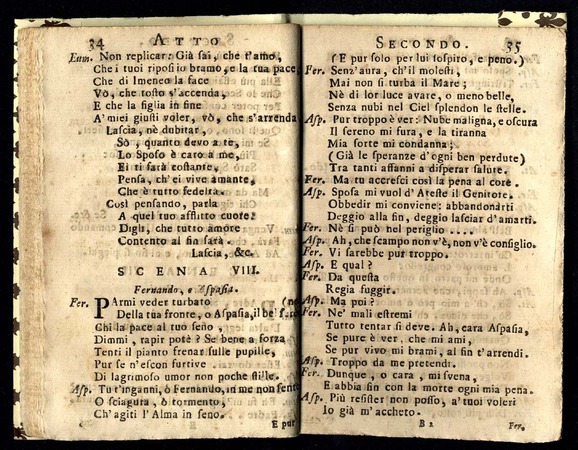 34 ATTO
Eum. Non replicar: Già sai, che t'amo,
Che i tuoi riposi io bramo, e la tua pace,
Che di Imeneo la face
Vò, che tosto s'accenda,
E che la figlia in fine
A' miei giusti voler, vò, che s'arrenda
Lascia, nè dubitar,
Sò, quanto devo a te,
Lo Sposo è caro a me,
Ei ti sarà costante,
Pensa, ch'ei vive amante,
Che è tutto fedeltà.
Così pensando, parla
A quel tuo afflitto cuore.
Digli, che tutto amore
Contento al fin sarà.
Lascia, &c.
SCENA VIII.
Fernando, e Aspasia.
Fer. PArmi veder turbato
Della tua fronte, o Aspasia, il be'
Chi la pace al tuo seno,
Dimmi, rapir potè? Se bene a forza
Tenti il pianto frenar sulle pupille,
Pur se n'escon furtive
Di lagrimoso umor non poche stille.
Asp. Tu t'inganni, ò Fernando, in me non sento
O sciagura, ò tormento,
Ch'agiti l'Alma in seno.
E pur
SECONDO. 35
(E pur solo per lui sospiro, e peno.)
Fer. Senz'aura, ch'il molesti,
Mai non si turba il Mare;
Nè di lor luce avare, o meno belle,
Senza nubi nel Ciel splendon le stelle.
Asp. Pur troppo è ver: Nube maligna, e oscura
Il sereno mi fura, e la tiranna
Mia sorte mi condanna;
(Già le speranze d'ogni ben perdute)
Tra tanti affanni a disperar salute.
Fer. Ma tu accresci così la pena al core.
Asp. Sposa mi vuol d'Ateste il Genitore.
Obbedir mi conviene: abbandonarti
Deggio alla fin, deggio lasciar d'amarti.
Fer. Nè si può nel periglio ....
Asp. Ah, che scampo non v'è, non v'è consiglio.
Fer. Vi sarebbe pur troppo.
Asp. E qual?
Fer. Da questa
Regia fuggir.
Asp. Ma poi?
Fer. Ne' mali estremi
Tutto tentar si deve. Ah, cara Aspasia,
Se pure è ver, che mi ami,
Se pur vivo mi brami, al fin t'arrendi.
Asp. Troppo da me pretendi.
Fer. Dunque, o cara, mi svena,
E abbia fin con la morte ogni mia pena.
Asp. Più resister non posso, a' tuoi voleri
Io già m'accheto.
B 2 Fer.